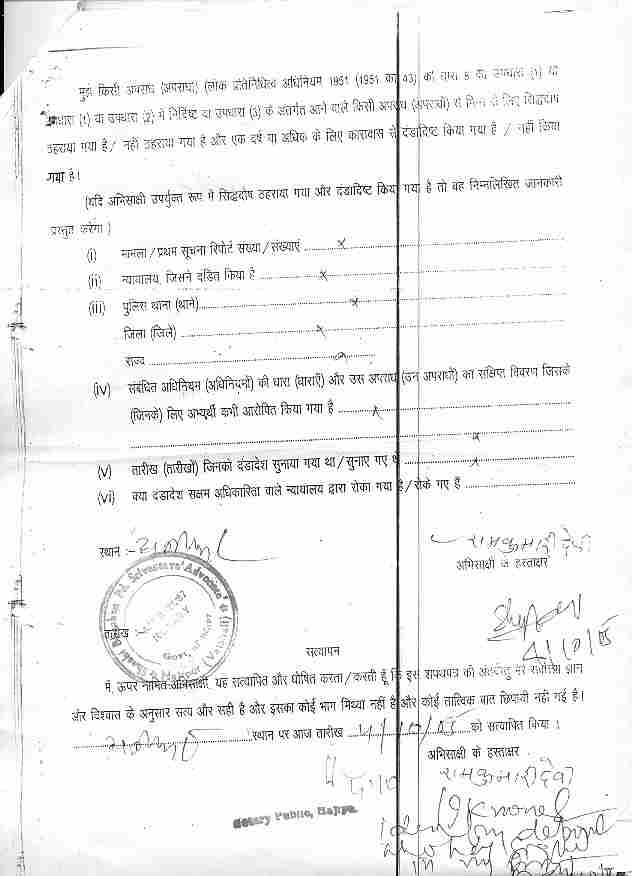 मुझे किसी अपराध (अपराधों) (लोक प्रतिनिधित्व अधिनियम 1951 (1951 का 43) की धारा 8 की उपधारा (1) या
उपधारा (1) या उपधारा (2) में निर्दिष्ट या उपधारा (3) के अंतर्गत आने वाले किसी अपराध (अपराधों) से भिन्न के लिए सिद्धदोष
ठहराया गया है / नहीं ठहराया गया है और एक वर्ष या अधिक के लिए कारावास से दंडादिष्ट किया गया है / नहीं किया
गया है।
(यदि अभिसाक्षी उपर्युक्त रूप में सिद्धदोष ठहराया गया और दंडादिष्ट किया गया है तो वह निम्नलिखित जानकारी
प्रस्तुत करेगा)
(i) मामला / प्रथम सूचना रिपोर्ट संख्या / संख्याएं ........ x ........
(ii) न्यायालय, जिसने दंडित किया है ........ x ........
(iii) पुलिस थाना (थाने) ........ x ........
जिला (जिले) ........ x ........
राज्य ........
(iv) संबंधित अधिनियम (अधिनियमों) की धारा (धाराएँ) और उस अपराध (उन अपराधों) का संक्षिप्त विवरण जिसके
(जिनके) लिए अभ्यर्थी कभी आरोपित किया गया है ........ x ........
........ x ........
(v) तारीख (तारीखों) जिनको दंडादेश सुनाया गया था / सुनाए गए थे ........ x ........
(vi) क्या दंडादेश सक्षम अधिकारिता वाले न्यायालय द्वारा रोका गया है / रोके गए हैं ........
स्थान :-
रामकुमारी देवी
अभिसाक्षी के हस्ताक्षर
Shashi Bhushan Pd. Srivastava Advocate
NOTARY
Govt. of
तारीख :-
4/10/05
सत्यापन
मैं, ऊपर नामित अभिसाक्षी, यह सत्यापित और घोषित करता / करती हूँ कि इस शपथपत्र की अंतर्वस्तु मेरे सर्वोत्तम ज्ञान
और विश्वास के अनुसार सत्य और सही है और इसका कोई भाग मिथ्या नहीं है और कोई तात्विक बात छिपायी नहीं गई है।
........ स्थान पर आज तारीख 4/10/05 को सत्यापित किया।
अभिसाक्षी के हस्ताक्षर
रामकुमारी देवी
Notary Public, Hajipur